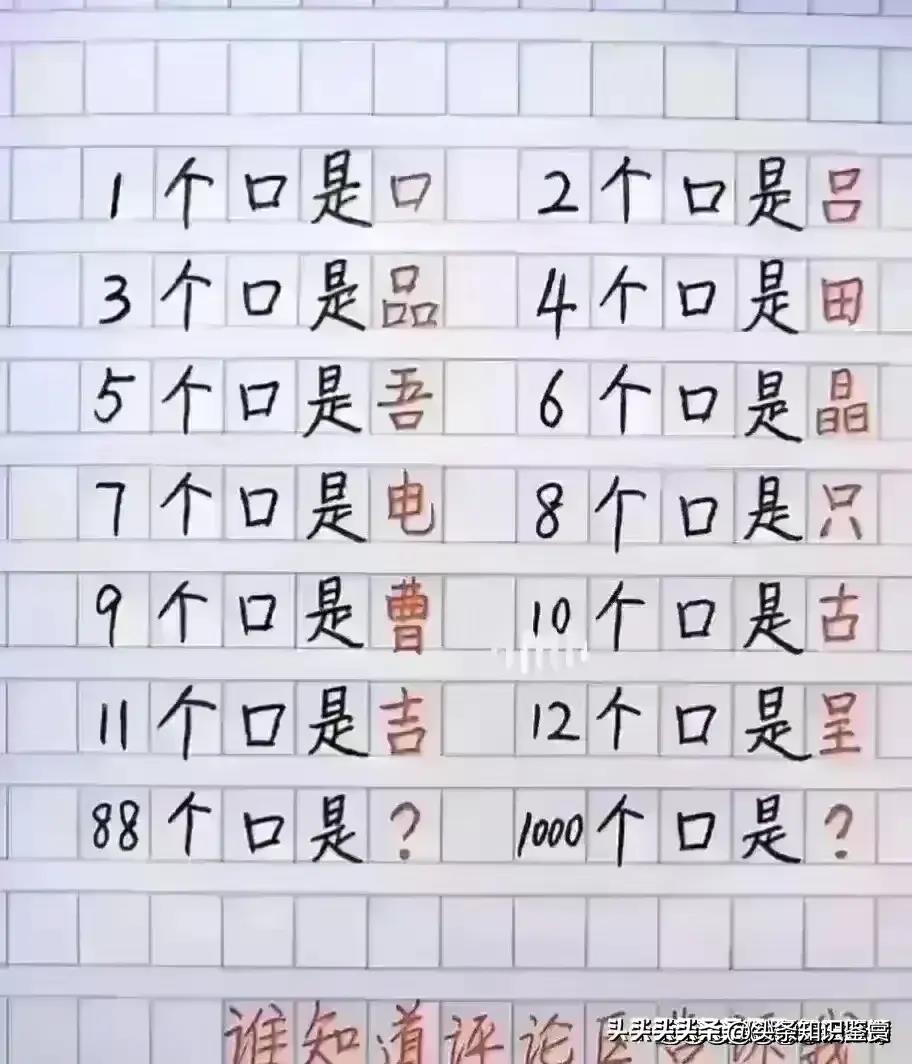 1个口是口 2个口是吕
3个口是品 4个口是田
5个口是吾 6个口是晶
7个口是电 8个口是只
9个口是曹 10个口是古
11个口是吉 12个口是呈
88个口是? 1000个口是?
谁知道评论区告诉我
@头条知识鉴赏